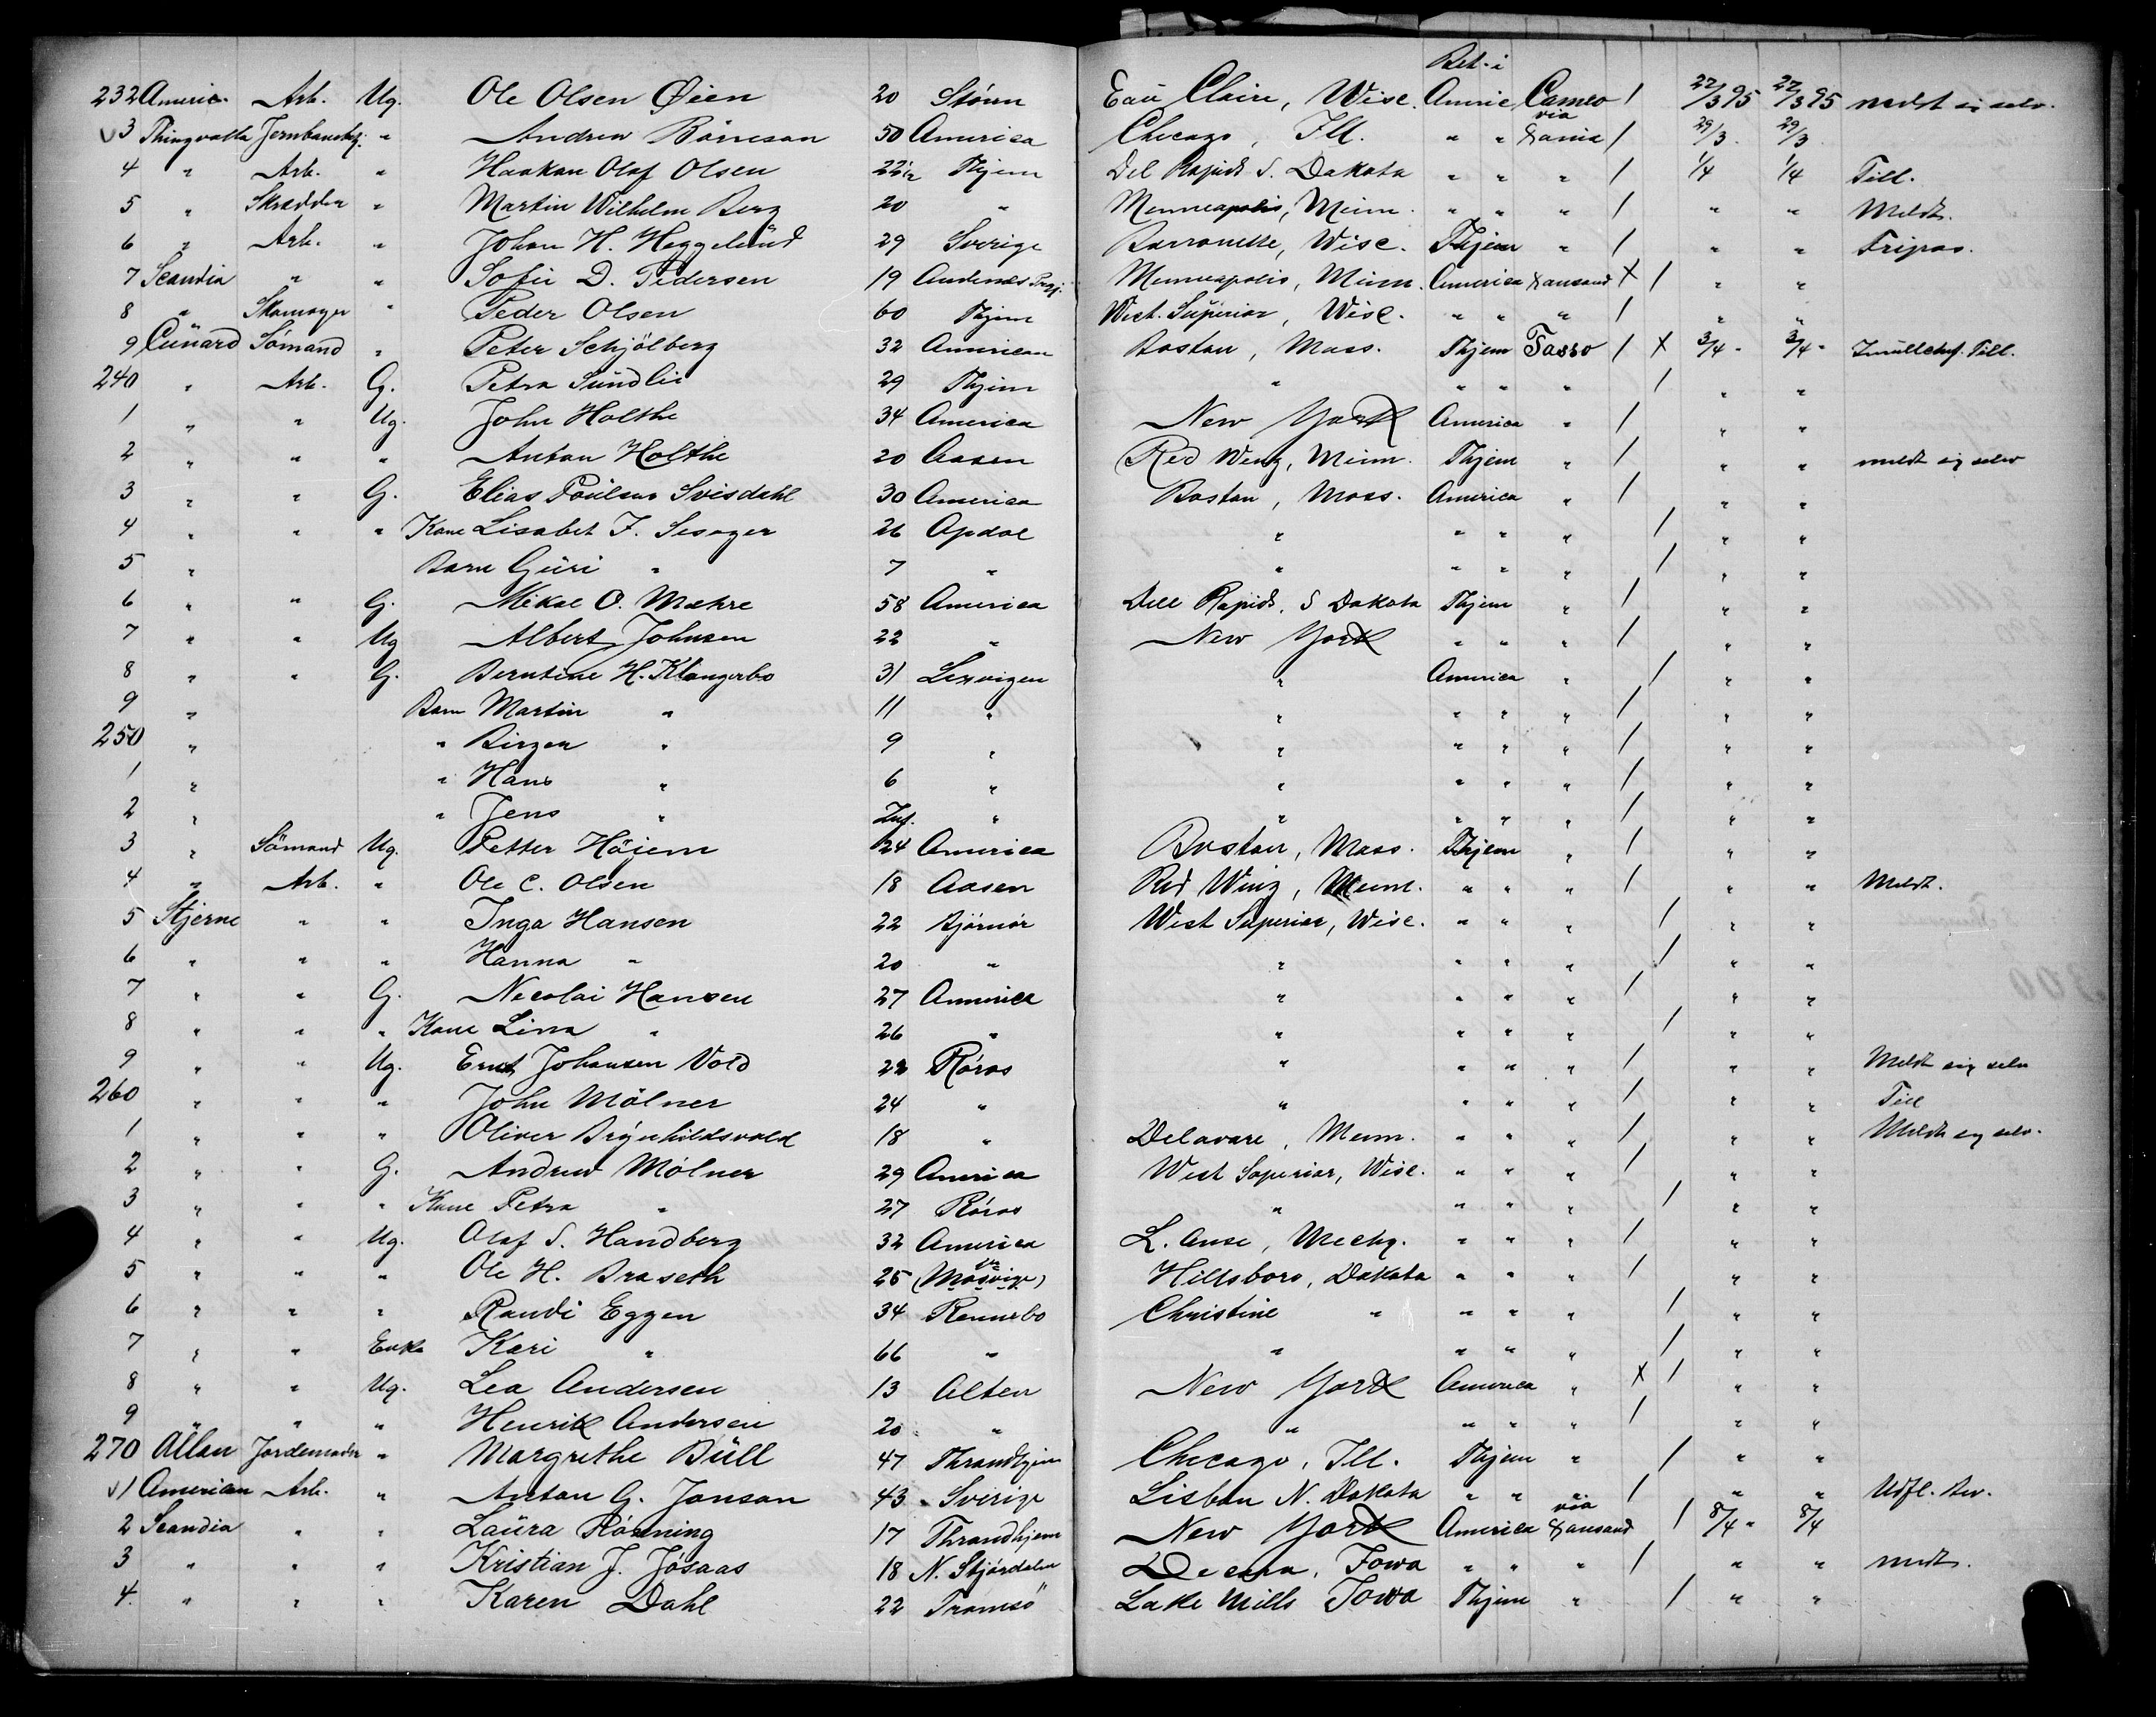 Bet. i
232 Americ. Arb. Ug. Ole Olsen Öien 20 Stören Eau Claire, Wisc. Americ Cameo / 27/3 95 27/3 95 meldt sig selv.
3 Thingvalla " Andrew Börreson 50 America Checago, Ill. " " via Xania / 29/3. 29/3.
4 " Arb. " Haakon Olaf Olsen 22 1/2 Thjem Del Rapids S. Dakota " " " / 1/4 1/4 Till.
5 " Skrædder " Martin Wilhelm Berg 20 " Menneapolis, Meinn. " " " / " " Meldt.
6 " Arb. " Johan H. Heggelund 29 Sverige Barronette, Wisc. Thjem " / " " Fripas.
7 Scandia " " Sofie D. Pedersen 19 Andenæs Menneapolis, Meinn. America Xansand X / " "
8 " Skomager " Peder Olsen 60 Thjem West. Superior, Wisc. " " " / " "
9 Cunard Sömand " Peter Schjölberg 32 American Boston, Mass. Thjem Tasso / X 3/4 " 3/4 " Till.
240 " Arb. G. Petra Sundlie 29 Thjem " " " " / " "
1 " " Ug. John Holthe 34 America New York America " / " "
2 " " " Anton Holthe 20 Aasen Red Weng, Meinn. Thjem " / " " meldt sig selv
3 " " G. Elias Poulsen Svisdahl 30 America Boston, Mass. America " / " "
4 " " " Kone Lisabet F. Sesager 26 Opdal " " " " / " "
5 " Barn Guri " 7 " " " " " / " "
6 " " G. Mikal O. Mæhre 58 America Dell Rapids, S Dakota Thjem " / " "
7 " " Ug Albert Johnsen 22 " New York " " " / " "
8 " " G. Berntine H. Klungerbo 31 Lexvigen " America " / " "
9 " Barn Martin " 11 " " " " " / " "
250 " " Birger " 9 " " " " " / " "
1 " " Hans " 6 " " " " " / " "
2 " " Jens " Inf. " " " " " / " "
3 " Sömand Ug. Petter Höiem 24 America Boston, Mass. Thjem " / " "
4 " Arb. " Ole C. Olsen 18 Aasen Red Wing, Meinn. " " " / " " Meldt.
5 Stjerne " " Inga Hansen 22 Bjørnör West Superior, Wisc. " " " / " "
6 " " " Hanna " 20 " " " " " / " "
7 " " G. Necolai Hansen 27 America " " " " / " "
8 " " " Kone Lina " 26 " " " " " / " "
9 " " Ug. Ernst Johansen Vold 22 Röros " " " " / " " Meldt sig selv
260 " " " John Mölner 24 " " " " " / " " Till
1 " " " Oliver Brynhildsvold 18 " Delavare, Meinn. " " " / " " Meldt sig selv.
2 " " G. Andrew Mölner 29 America West Superior, Wisc. " " " / " "
3 " " " Kone Petra " 27 Röros " " " " / " "
4 " " Ug. Olaf S. Handberg 32 America L. Anse, Mechg. " " " / " "
5 " " " Ole H. Braseth 25 (Mosvige) Hillsboro, Dakota " " " / " "
6 " " " Randi Eggen 34 Rennebo Christine " " " " / " "
7 " " Enke Kari " 66 " " " " " / " "
8 " " Ug. Lea Andersen 13 Alten New York America " X / " "
9 " " " Henrik Andersen 20 " " " " " / " "
270 Allan Jordemoder " Margrethe Bull 47 Thrandhjem Checago, Ill. Thjem " / " "
1 American Arb. " Anton G. Jonson 43 Sverige Lisbon N. Dakota " " " / " " Udfl. Att.
2 Scandia " " Laura Rönning 17 Thrandhjem New York America via Xansand / 8/4 " 8/4
3 " " " Kristian J. Jösaas 18 N. Stjördalen Decora, Iowa " " " / " " meldt.
4. " " " Karen Dahl 22 Tromsö Lake Mills Iowa Thjem " / " "